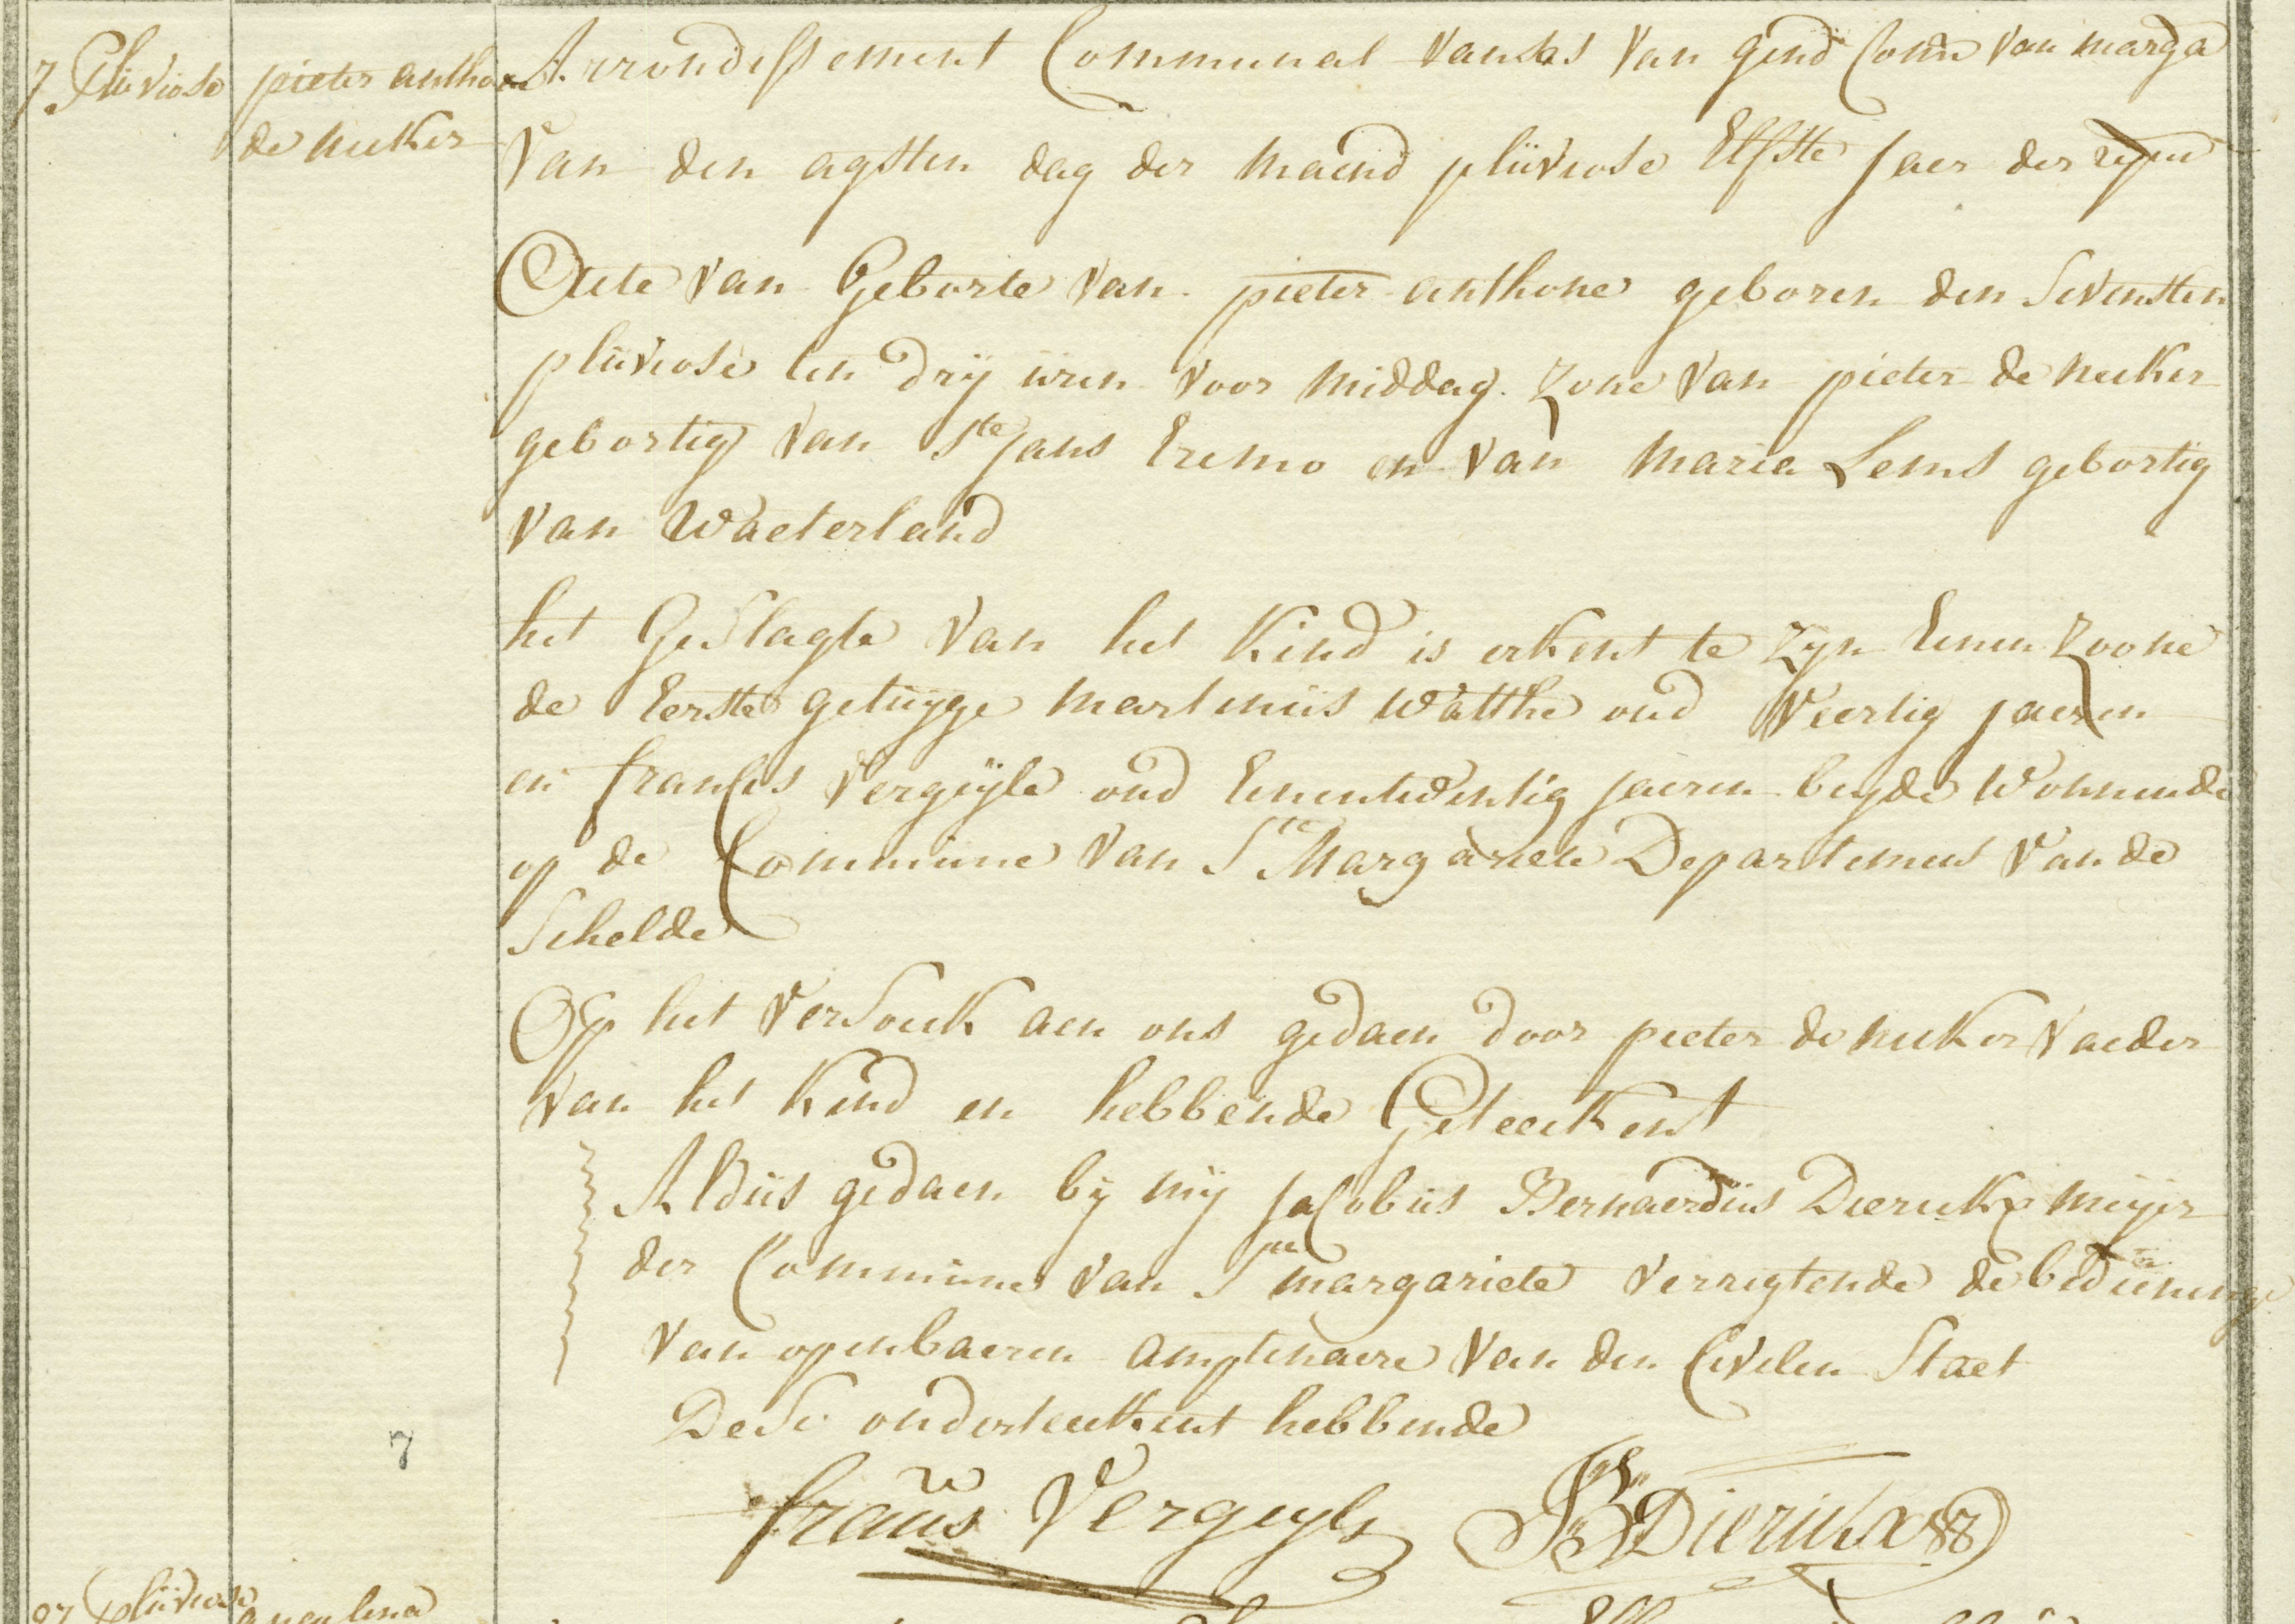 7 Pluviose
pieter anthone
de neeker
Arrondissement Communal van Sas van gend Comn van marga
Van den agsten dag der maend pluviose Elfste Jaer der
Acte van Geborte van pieter anthone geboren den Sevensten
pluviose ten drij uren voor middag. Zone van pieter de neeker
gebortig van Ste Jans Eremo en van Maria Lems gebortig
van Waeterland
het Geslagte van het Kind is erkent te Zijn Eenen Zoone
de Eerste getuyge Martinus Watthe oud Veertig jaeren
en francis Vergeyle oud Eenentwentig jaeren beyde Wonnende
op de Commune van Ste Margariete Departement van de
Schelde
Op het Versoeck aen ons gedaen door pieter de neeker Vaeder
van het Kind en hebbende Geteeckent
Aldus gedaen bij mij Jacobus Bernaerdus Dierickx meyer
der Commune van Ste margariete verrigtende de bedieninge
van openbaeren amptenaere van den Civilen Staet
Dese onderteeckent hebbende
francis Vergeyle JBDierickx
7
pluviose
angelina